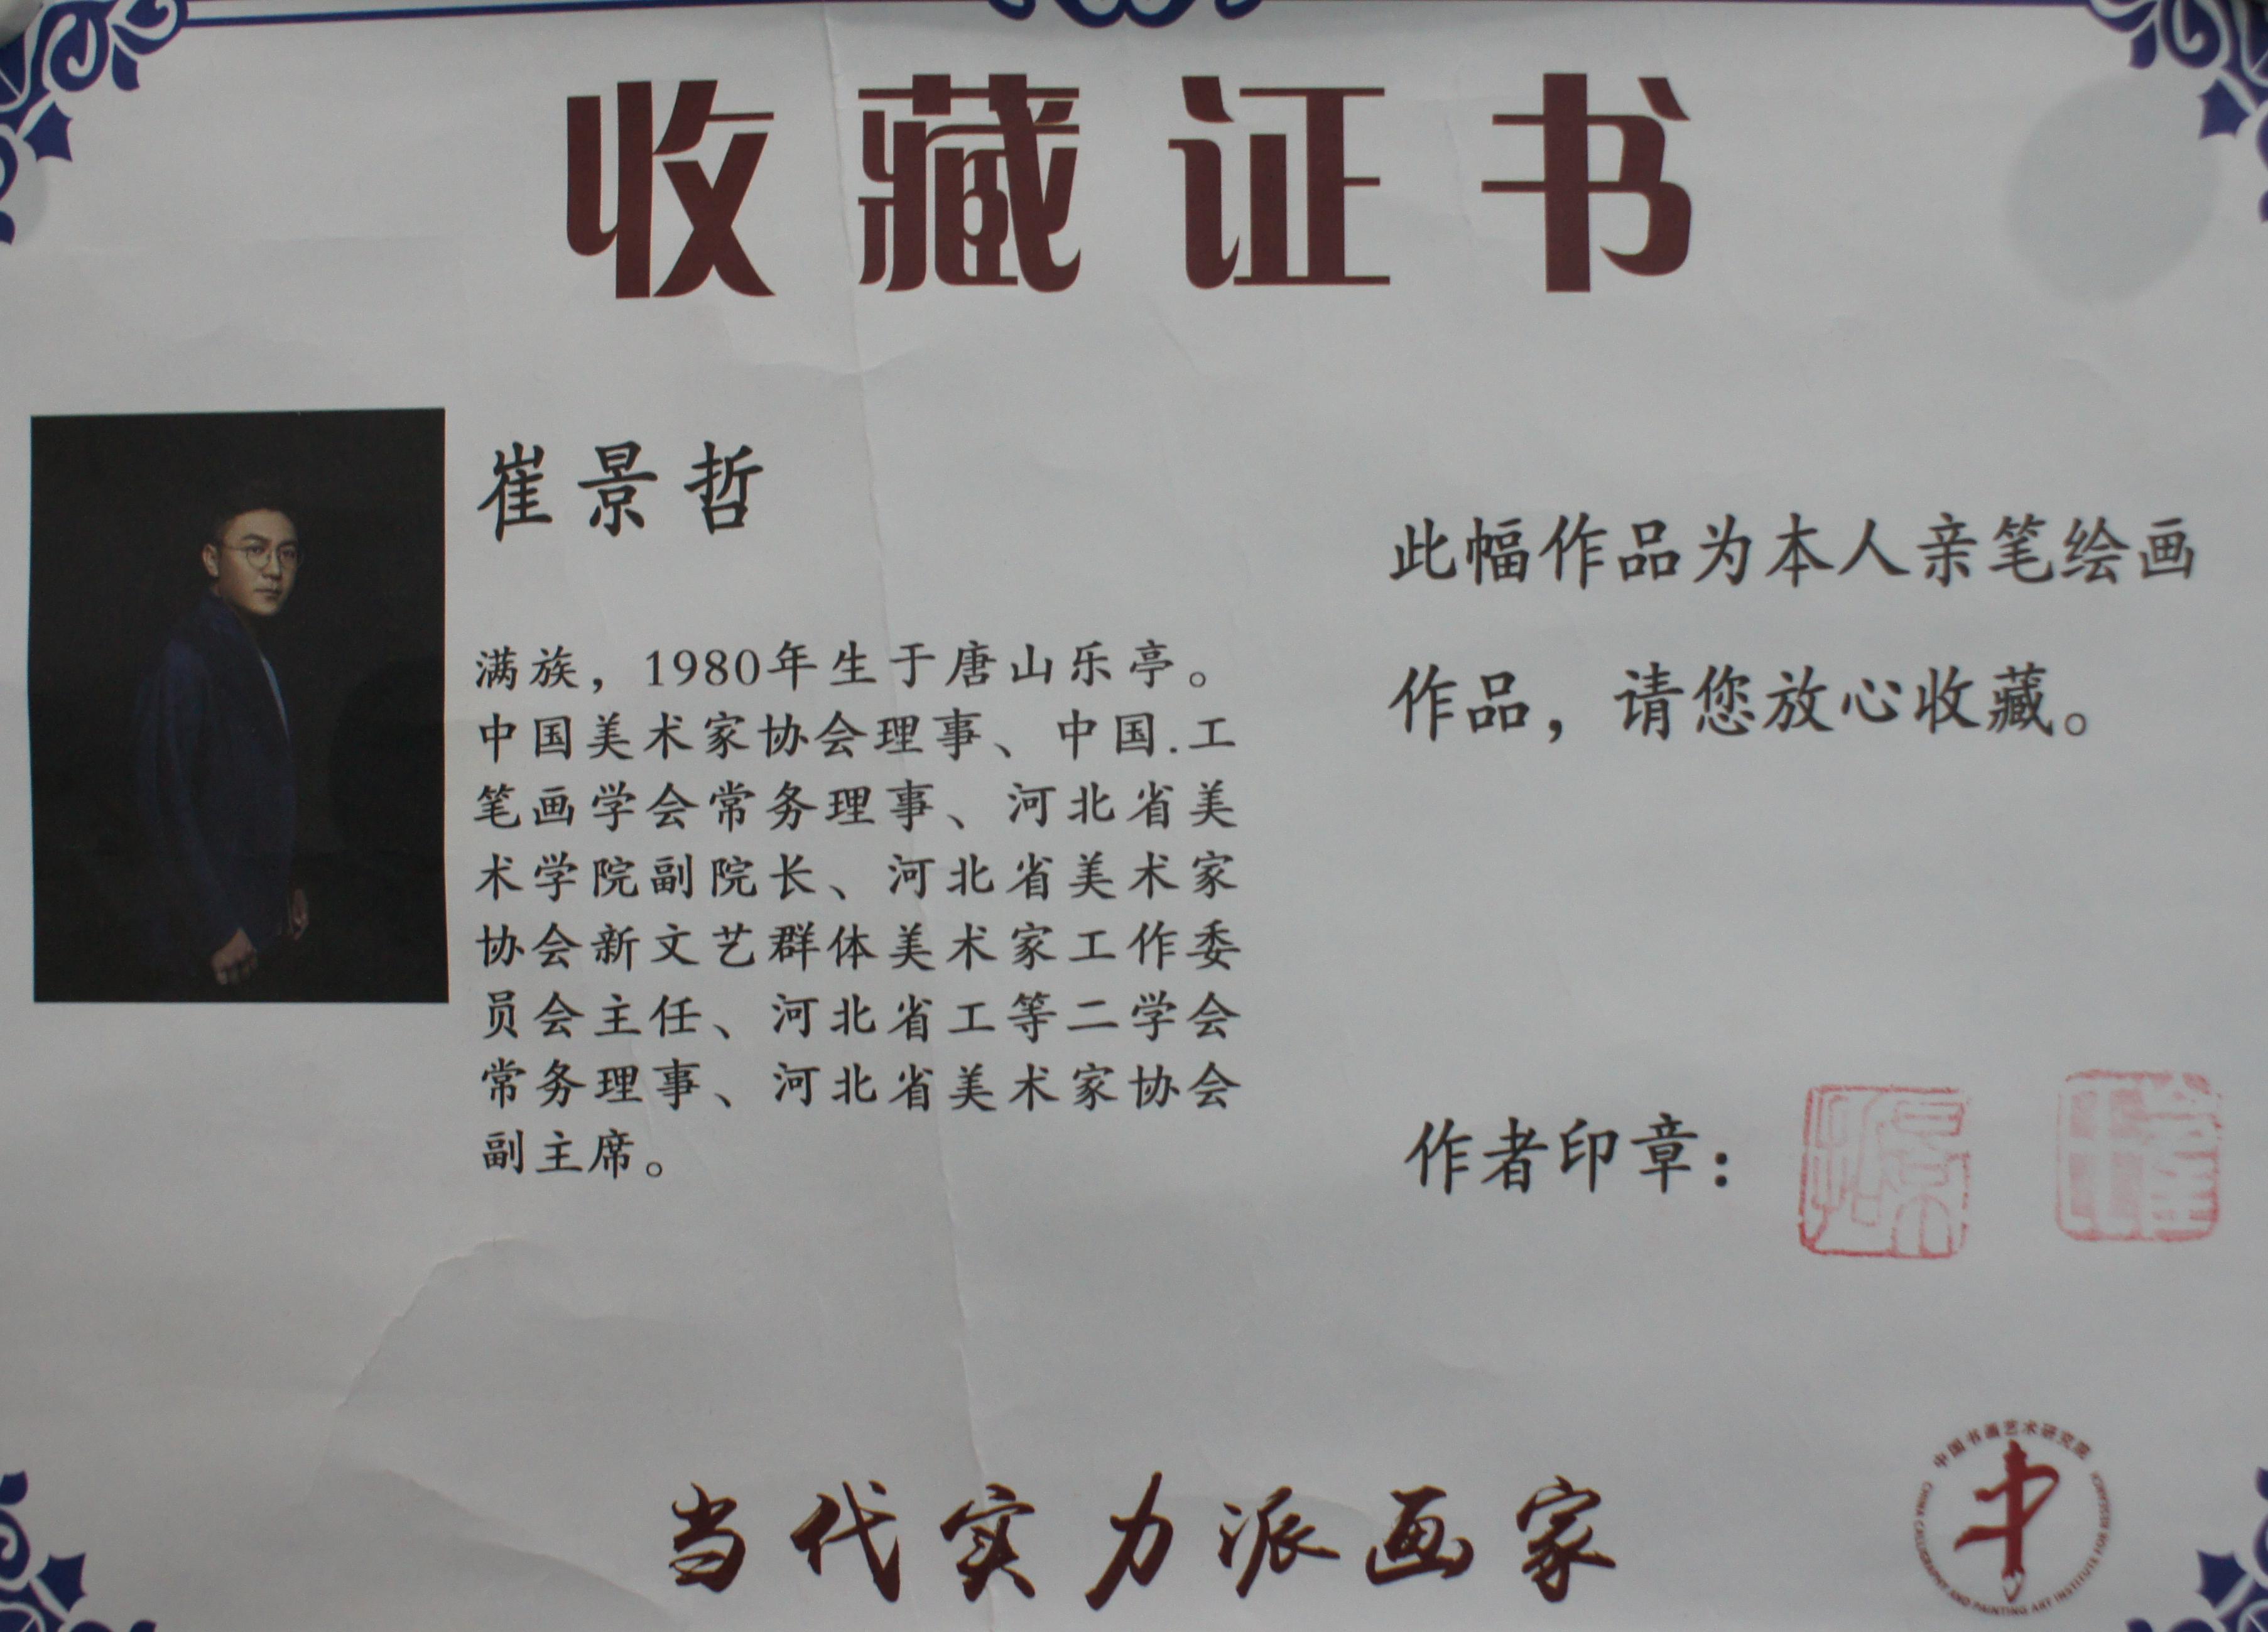 收藏证书
崔景哲
满族，1980年生于唐山乐亭。
中国美术家协会理事、中国.工
笔画学会常务理事、河北省美
术学院副院长、河北省美术家
协会新文艺群体美术家工作委
员会主任、河北省工等二学会
常务理事、河北省美术家协会
副主席。
此幅作品为本人亲笔绘画
作品，请您放心收藏。
作者印章：
当代实力派画家
中国书画艺术研究院
CHINA CALLIGRAPHY AND PAINTING ART INSTITUTE FOR RESEARCH